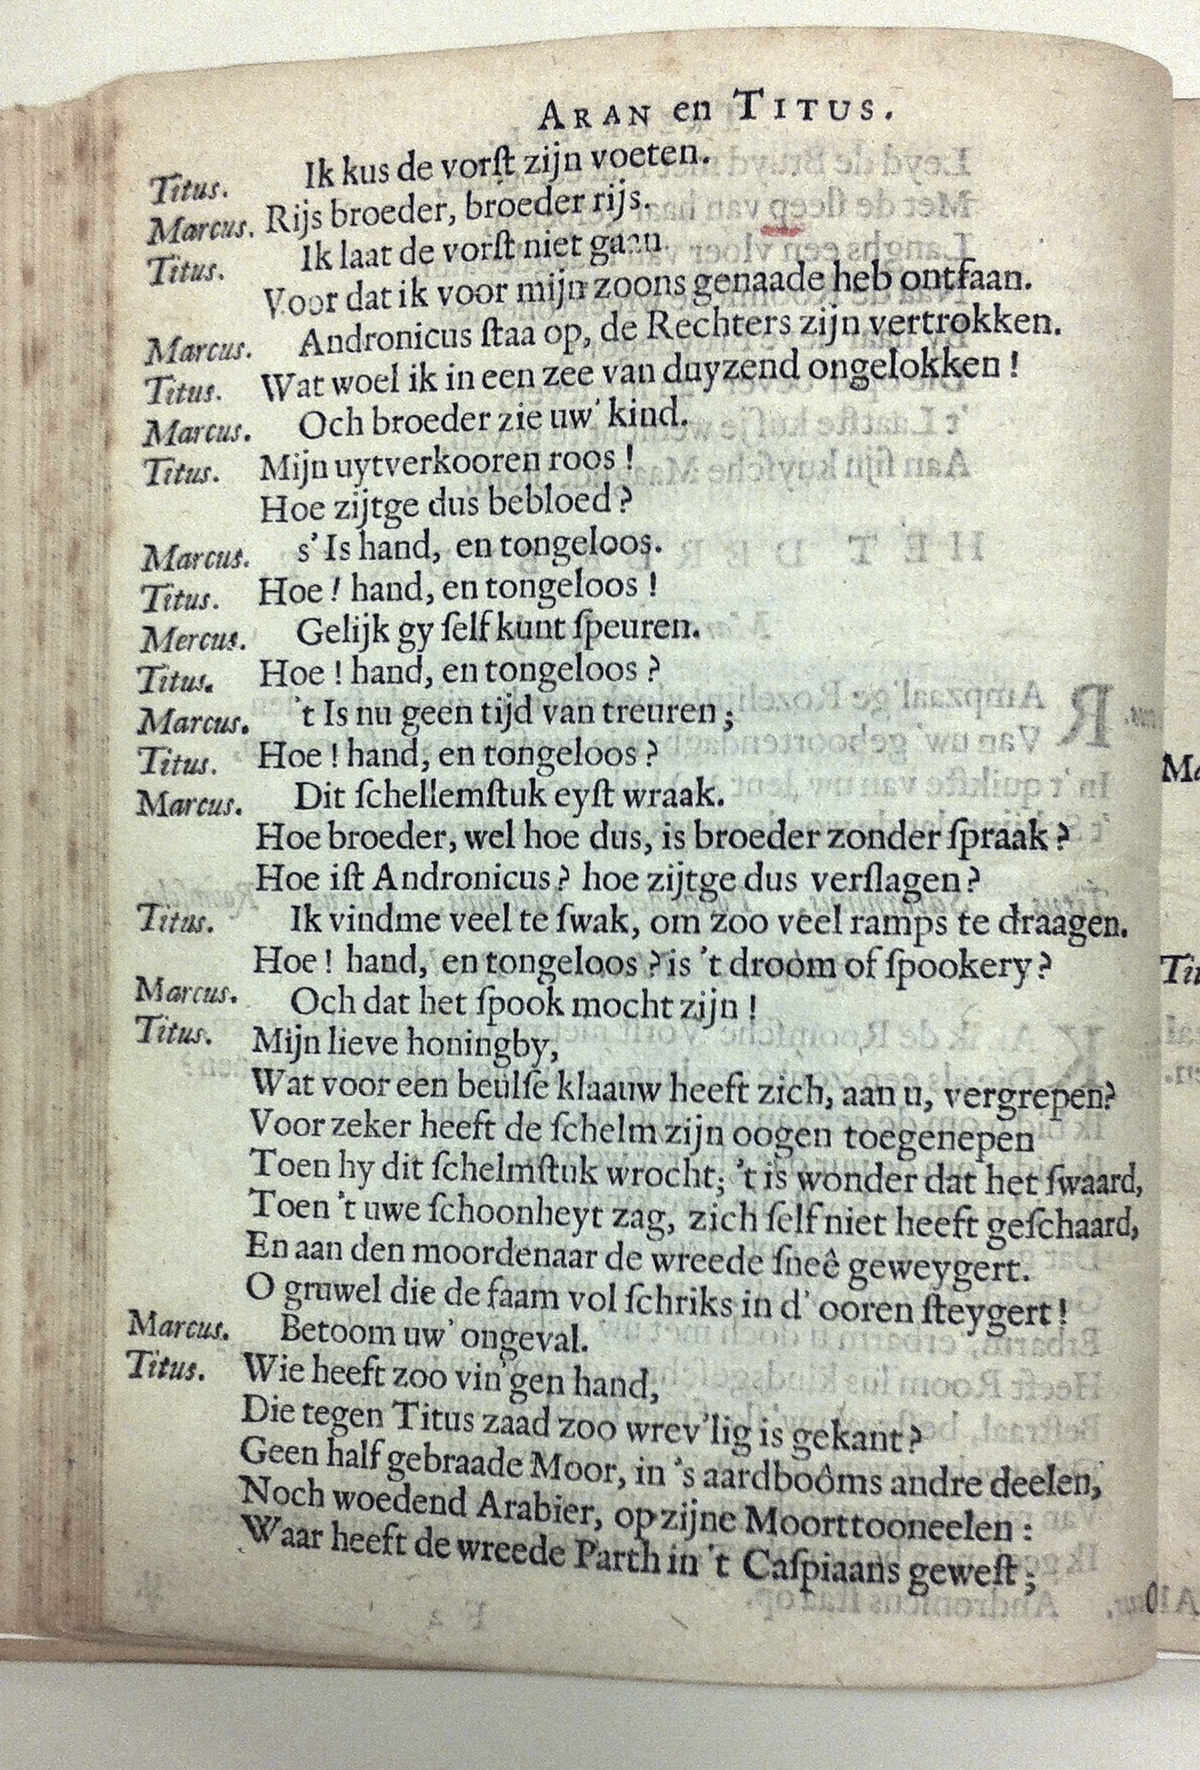 ARAN en TITUS.
Titus. Ik kus de vorſt zijn voeten.
Marcus. Rijs broeder, broeder rijs.
Titus. Ik laat de vorſt niet gaan.
Voor dat ik voor mijn zoons genaade heb ontfaan.
Marcus. Andronicus ſtaa op, de Rechters zijn vertrokken.
Titus. Wat woel ik in een zee van duyzend ongelokken!
Marcus. Och broeder zie uw' kind.
Titus. Mijn uytverkooren roos!
Hoe zijtge dus bebloed?
Marcus. s'Is hand, en tongeloos.
Titus. Hoe! hand, en tongeloos!
Mercus. Gelijk gy ſelf kunt ſpeuren.
Titus. Hoe! hand, en tongeloos?
Marcus. 't Is nu geen tijd van treuren;
Titus. Hoe! hand, en tongeloos?
Marcus. Dit ſchellemſtuk eyſt wraak.
Hoe broeder, wel hoe dus, is broeder zonder ſpraak?
Hoe iſt Andronicus? hoe zijtge dus verſlagen?
Titus. Ik vindme veel te ſwak, om zoo veel ramps te draagen.
Hoe! hand, en tongeloos? is 't droom of ſpookery?
Marcus. Och dat het ſpook mocht zijn!
Titus. Mijn lieve honingby,
Wat voor een beulſe klaauw heeft zich, aan u, vergrepen?
Voor zeker heeft de ſchelm zijn oogen toegenepen
Toen hy dit ſchelmſtuk wrocht; 't is wonder dat het ſwaard,
Toen 't uwe ſchoonheyt zag, zich ſelf niet heeft geſchaard,
En aan den moordenaar de wreede ſneê geweygert.
O gruwel die de faam vol ſchriks in d' ooren ſteygert!
Marcus. Betoom uw' ongeval.
Titus. Wie heeft zoo vin'gen hand,
Die tegen Titus zaad zoo wrev'lig is gekant?
Geen half gebraade Moor, in 's aardboôms andre deelen,
Noch woedend Arabier, op zijne Moorttooneelen:
Waar heeft de wreede Parth in 't Caſpiaans geweſt;